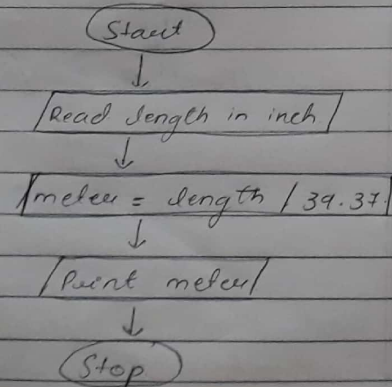 Start
Read length in inch
meter = length / 39.37
Print meter
Stop